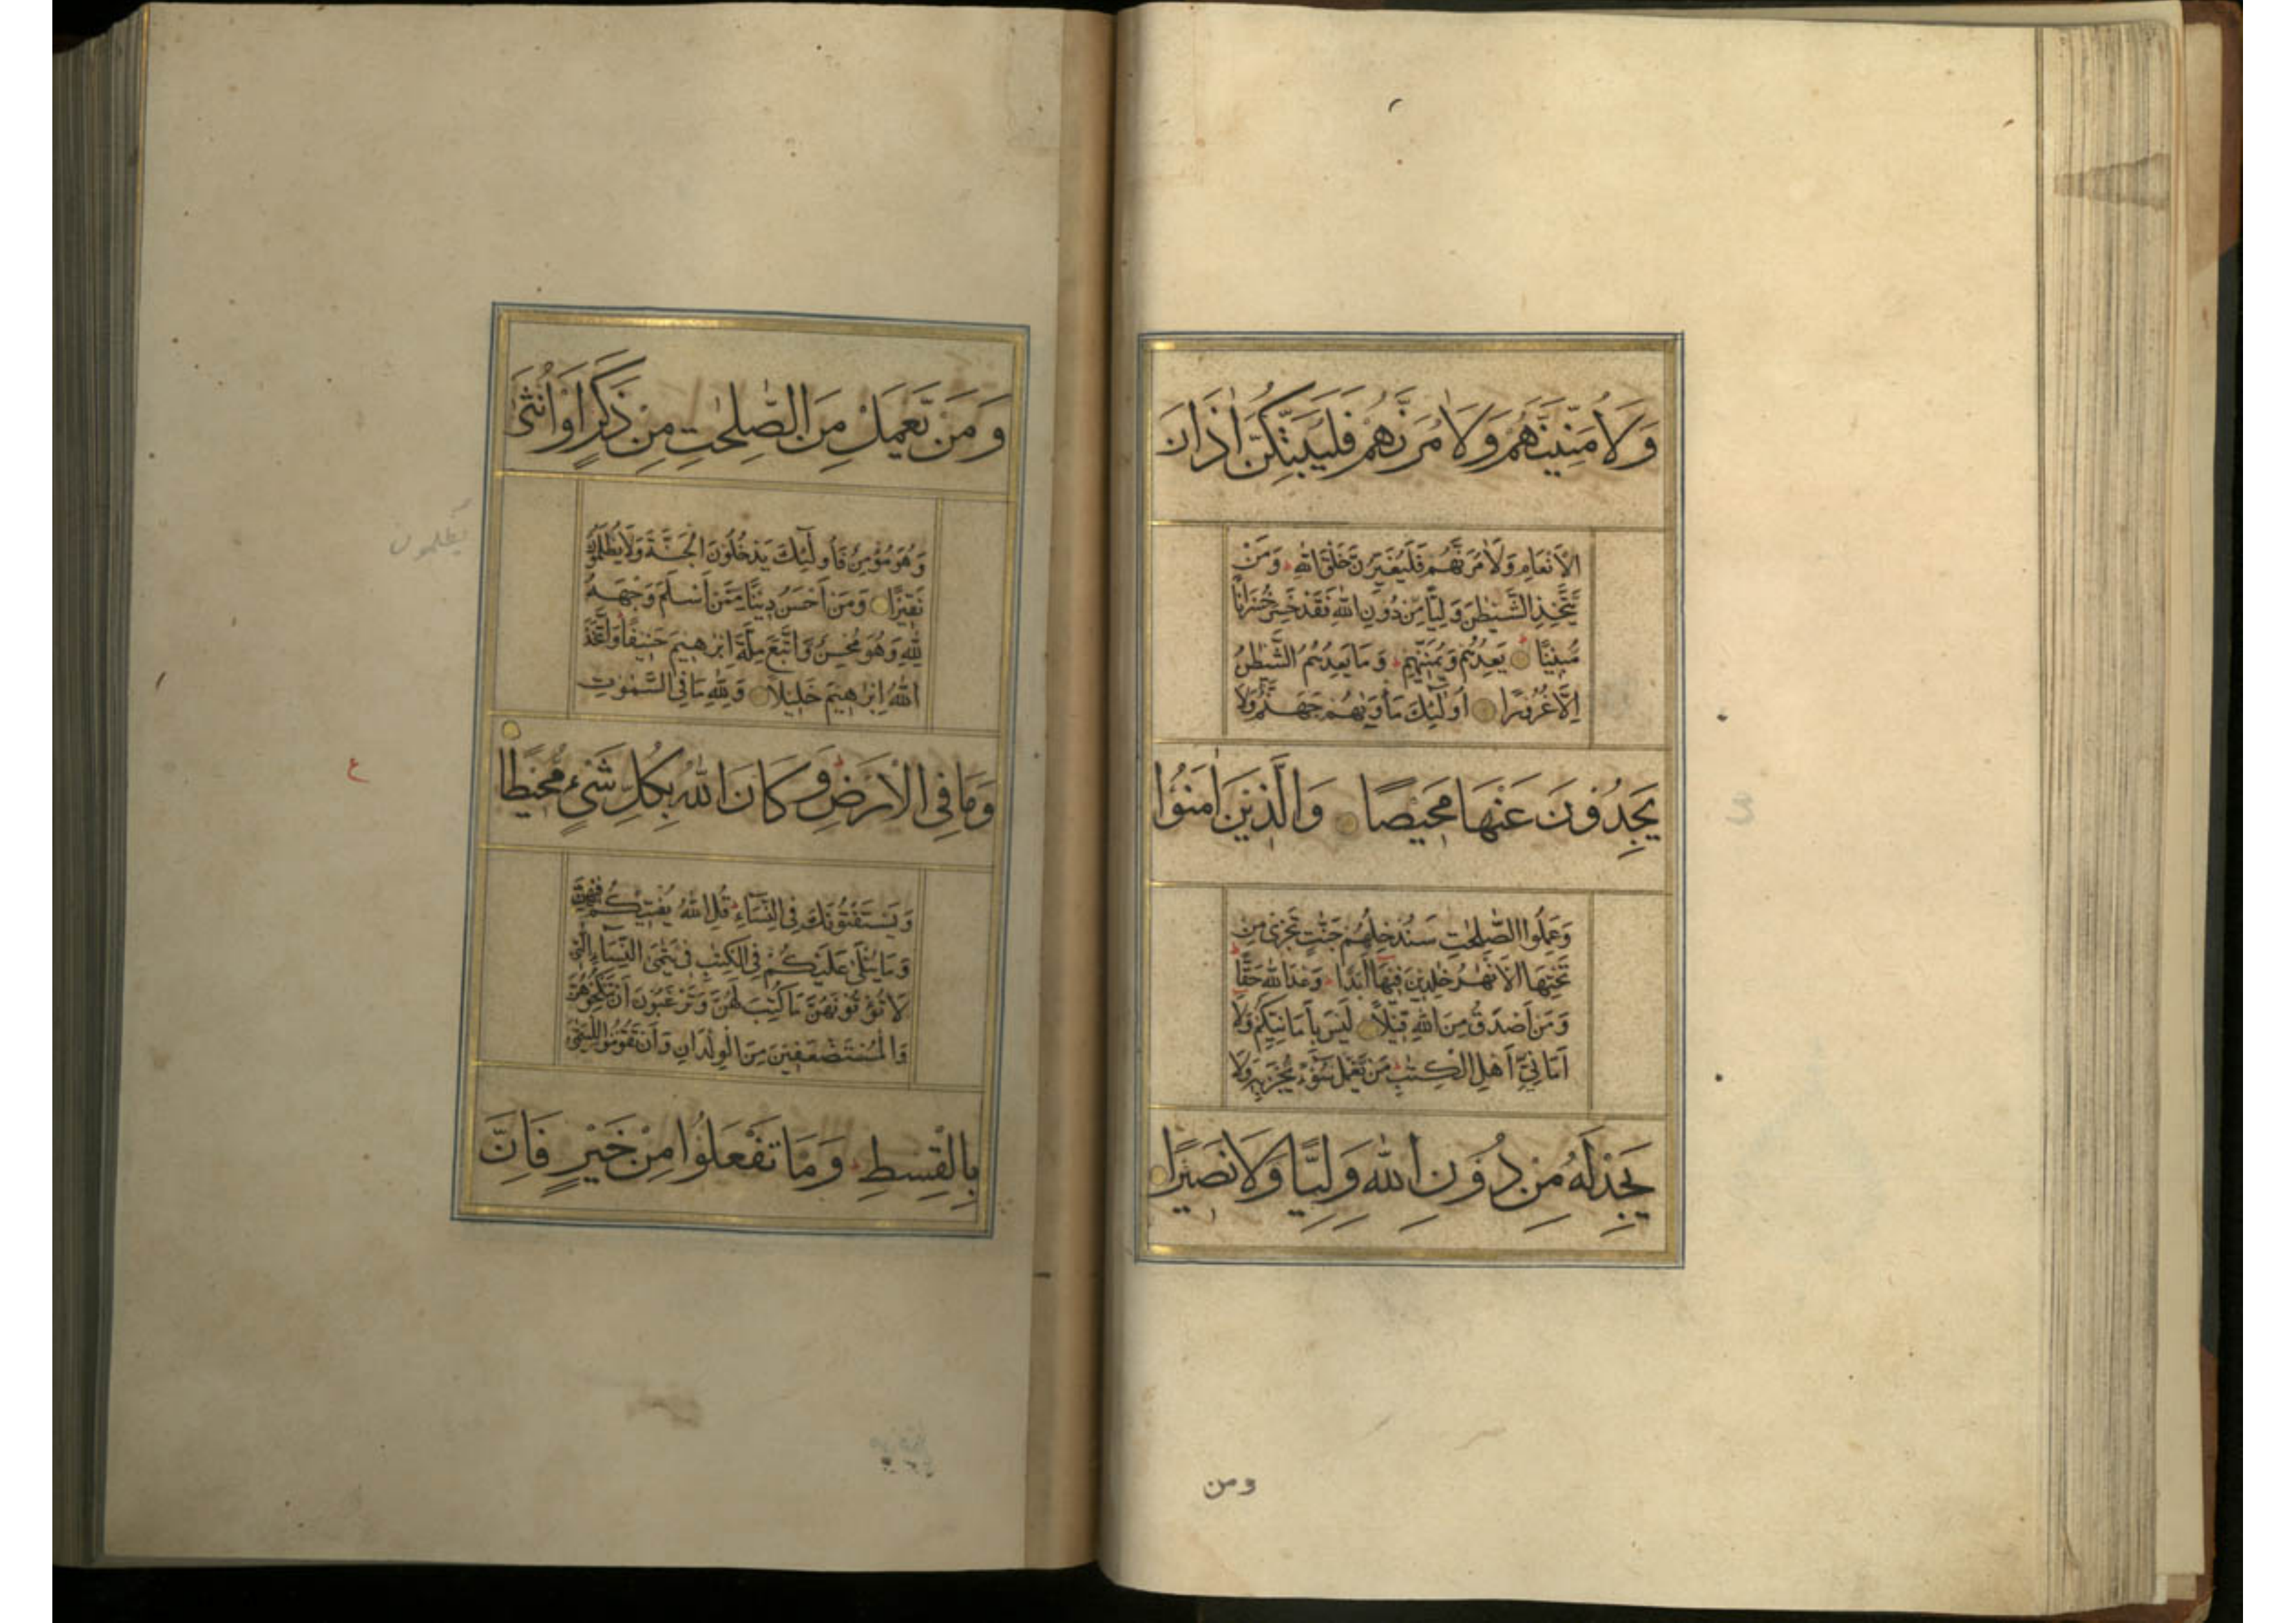 وَلَأُمَنِّيَنَّهُمْ وَلَأٰمُرَنَّهُمْ فَلَيُبَتِّكُنَّ اٰذَانَ
الْاَنْعَامِ وَلَاٰمُرَنَّهُمْ فَلَيُغَيِّرُنَّ خَلْقَ اللّٰهِ وَمَنْ
يَتَّخِذِ الشَّيْطٰنَ وَلِيًّا مِنْ دُونِ اللّٰهِ فَقَدْ خَسِرَ خُسْرَانًا
مُبِينًا يَعِدُهُمْ وَيُمَنِّيهِمْ وَمَا يَعِدُهُمُ الشَّيْطٰنُ
اِلَّا غُرُورًا اُولٰٓئِكَ مَأْوٰيهُمْ جَهَنَّمُ وَلَا
يَجِدُونَ عَنْهَا مَحِيْصًا وَالَّذِيْنَ اٰمَنُوْا
وَعَمِلُوا الصّٰلِحٰتِ سَنُدْخِلُهُمْ جَنّٰتٍ تَجْرِي مِنْ
تَحْتِهَا الْاَنْهٰرُ خٰلِدِيْنَ فِيْهَا اَبَدًا وَعْدَ اللّٰهِ حَقًّا
وَمَنْ اَصْدَقُ مِنَ اللّٰهِ قِيْلًا لَيْسَ بِاَمَانِيِّكُمْ وَلَا
اَمَانِيِّ اَهْلِ الْكِتٰبِ مَنْ يَّعْمَلْ سُوْءً يُجْزَ بِهِ وَلَا
يَجِدْ لَهُ مِنْ دُوْنِ اللّٰهِ وَلِيًّا وَلَا نَصِيْرًا
ومن
وَمَنْ يَّعْمَلْ مِنَ الصّٰلِحٰتِ مِنْ ذَكَرٍ اَوْ اُنْثٰى
وَهُوَ مُؤْمِنٌ فَاُولٰٓئِكَ يَدْخُلُوْنَ الْجَنَّةَ وَلَا يُظْلَمُوْنَ
يظلمون
نَقِيْرًا وَمَنْ اَحْسَنُ دِيْنًا مِمَّنْ اَسْلَمَ وَجْهَهُ
لِلّٰهِ وَهُوَ مُحْسِنٌ وَاتَّبَعَ مِلَّةَ اِبْرٰهِيْمَ حَنِيْفًا وَاتَّخَذَ
اللّٰهُ اِبْرٰهِيْمَ خَلِيْلًا وَلِلّٰهِ مَا فِي السَّمٰوٰتِ
وَمَا فِي الْاَرْضِ وَكَانَ اللّٰهُ بِكُلِّ شَيْءٍ مُحِيْطًا
ع
وَيَسْتَفْتُوْنَكَ فِي النِّسَاءِ قُلِ اللّٰهُ يُفْتِيْكُمْ فِيْهِنَّ
وَمَا يُتْلٰى عَلَيْكُمْ فِي الْكِتٰبِ فِي يَتٰمَى النِّسَاءِ الّٰتِي
لَا تُؤْتُوْنَهُنَّ مَا كُتِبَ لَهُنَّ وَتَرْغَبُوْنَ اَنْ تَنْكِحُوْهُنَّ
وَالْمُسْتَضْعَفِيْنَ مِنَ الْوِلْدَانِ وَاَنْ تَقُوْمُوْا لِلْيَتٰمٰى
بِالْقِسْطِ وَمَا تَفْعَلُوْا مِنْ خَيْرٍ فَاِنَّ